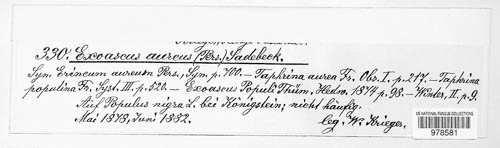 330. Exoascus aureus (Pers.) Sadebeck.
Syn. Erineum aureum Pers. Syn. p. 700. — Taphrina aurea Fr. Obs. I. p. 217. — Taphrina
populina Fr. Syst. III. p. 520. — Exoascus Populi Thüm. Hedw. 1874 p. 98. — Winter, II. p. 9.
Auf Populus nigra L. bei Königstein; nicht häufig.
Mai 1878, Juni 1882. leg. W. Krieger.
US NATIONAL FUNGUS COLLECTIONS
978581